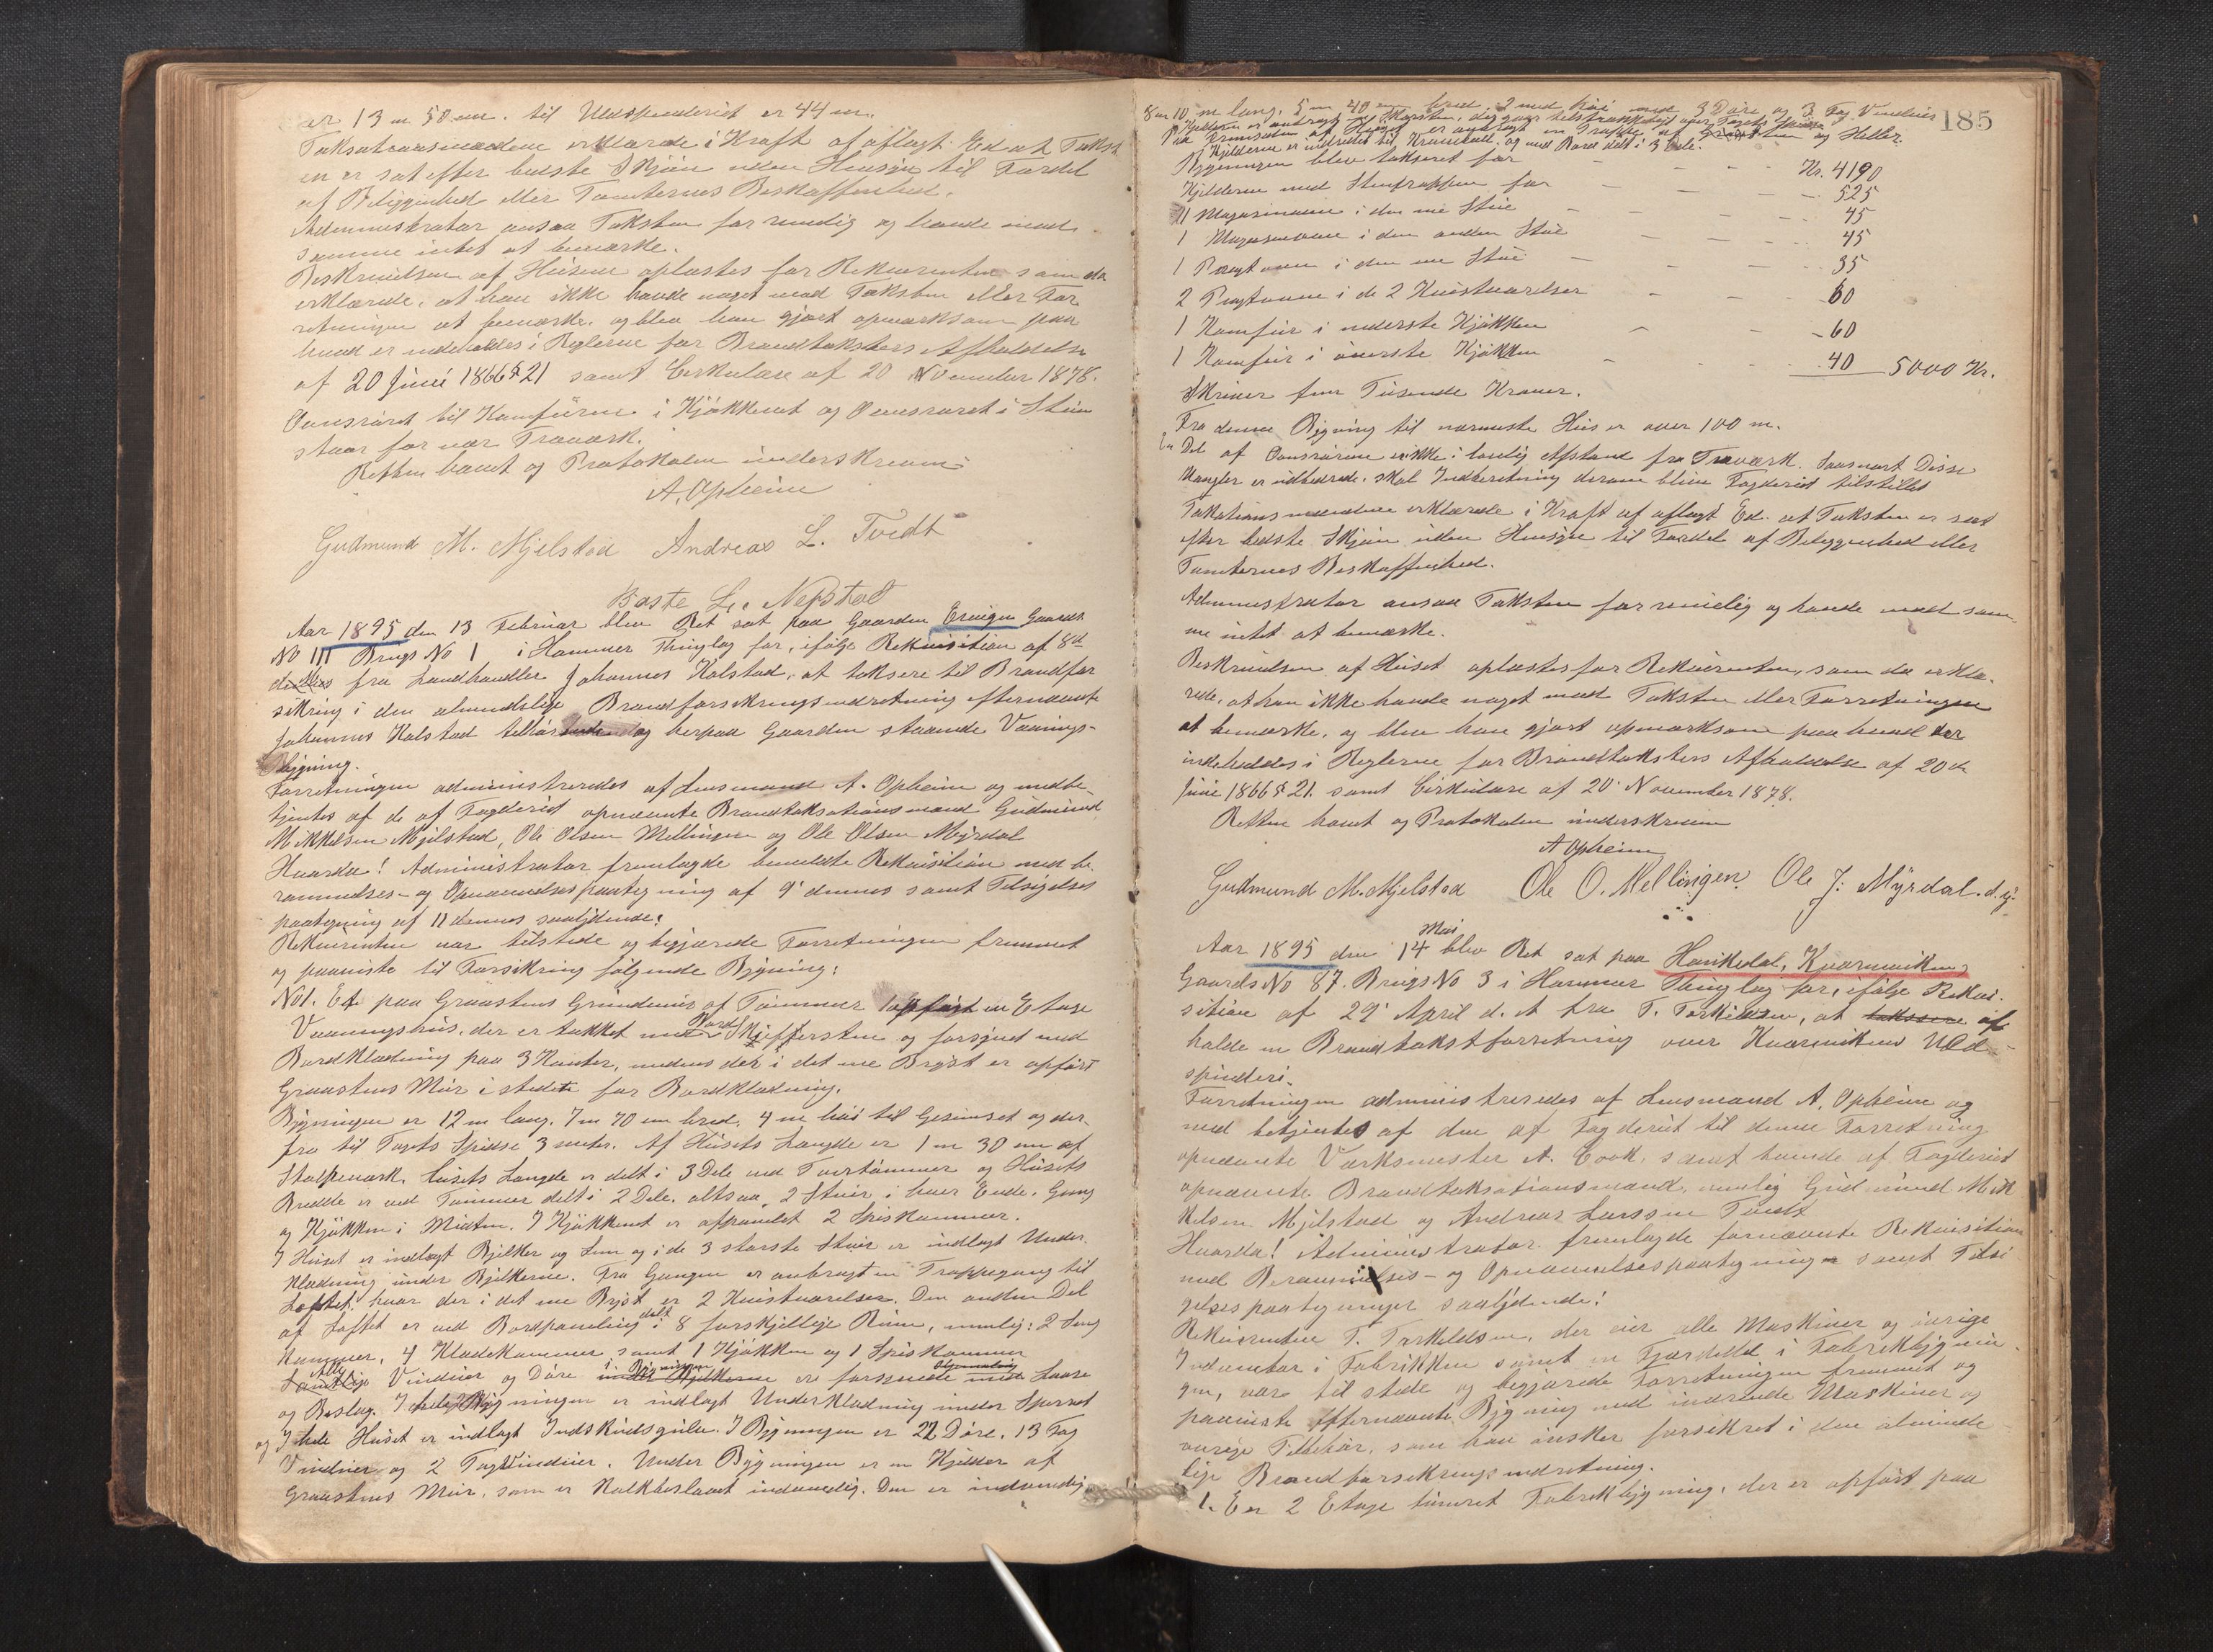 er 13 m 50 cm. til Uldspinderiet er 44 m.
Taksationsmændene erklærede i Kraft af aflagt Ed at Takst
en er sat efter bedste Skjøn uden Hensyn til Fordel
af Beliggenhed eller Tomternes Beskaffenhed.
Administrator ansaa Taksten for rimelig og havde mod
samme intet at bemærke.
Beskrivelsen af Husene oplæstes for Rekvirenten som da
erklærede, at han ikke havde noget mod Taksten eller For
retningen at bemærke, og blev han gjort opmærksom paa
hvad er indeholdes i Reglerne for Brandtaksters Afholdelse
af 20 Juni 1866 § 21 samt Cirkulære af 20 November 1878.
Ovnsrøret til Komfuren i Kjøkkenet og Ovnsrøret i Stuen
staar for nær Træværk.
Retten hævet og Protokolen underskreven
A. Opheim
Gudmund M. Mjelstad Andreas L. Tvedt
Baste L. Nepstad
Aar 1895 den 13 Februar blev Ret sat paa Gaarden Eningen Gaards
No 111 Brugs No 1 i Hammer Thinglag for, ifølge Rekvisition af 8de
dennes fra Landhandler Johannes Kalstad, at taksere til Brandfor
sikring i den almindelige Brandforsikringsindretning efternævnte
Johannes Kalstad tilhørende og herpaa Gaarden staaende Vaanings-
bygning.
Forretningen administreredes af Lensmand A. Opheim og medbe-
tjentes af de af Fogderiet opnævnte Brandtaksationsmænd Gudmund
Mikkelsen Mjelstad, Ole Olsen Mellingen og Ole Olsen Myrdal
Hvorda! Administrator fremlagde bemeldte Rekvisition med be
rammelses- og Opnævnelsespaategning af 9' dennes samt Tilsigelses
paategning af 11 dennes saalydende:
Rekvirenten var tilstede og begjærede Forretningen fremmet
og paaviste til Forsikring følgende Bygning:
No 1. Et paa Graastens Grundmur af Tømmer opført en Etage
Vaaningshus, der er tækket med Bord Skifersten og forsynet med
Bordklædning paa 3 Kanter, medens der i det ene Bryst er opført
Graastens Mur i stedet for Bordklædning.
Bygningen er 12 m lang, 7 m 70 cm bred, 4 m høi til Gesimset og der-
fra til Tagets Spidse 3 meter. Af Husets Længde er 1 m 30 cm af
Stolpeværk. Husets Længde er delt i 3 Dele ved Tvertømmer og Husets
Bredde er ved Tømmer delt i 2 Dele, altsaa 2 Stuer i hver Ende, Gang
og Kjøkken i Midten. I Kjøkkenet er afpanelet 2 Spiskammer.
I Huset er indlagt Bjelker og Lem og i de 3 største Stuer er indlagt Under
klædning under Bjelkerne. Fra Gangen er anbragt en Trappegang til
Loftet, hvor der i det ene Bryst er 2 Kvistværelser. Den anden Del
af Loftet er ved Bordpaneling delt i 8 forskjellige Rum, nemlig: 2 Seng
kammer, 4 Klædekammer, samt 1 Kjøkken og 1 Spiskammer
Samtlige Alle Vinduer og Døre under Bjelkerne i Bygningen ere forsynede med Laase
og Beslag. I hele Bygningen er indlagt Underklædning under Sperret
og I hele Huset er indlagt Indskudsgulv. I Bygningen er 22 Døre, 13 Fag
Vinduer og 2 Tagvinduer. Under Bygningen er en Kjelder af
Graastens Mur, som er Kalkbeslaaet indvendig. Den er indvendig
185
8 m 10 m lang, 5 m 40 cm bred, 2 med høi med 3 Døre og 3 Fag Vinduer
Fra Grunden af Huset er anbragt en Trappe af Graasten og Heller.
Kjelderen er indredet til Krambod, og med Bord delt i 3 Dele.
Bygningen blev takseret for - - - Kr. 4190
Kjelderen med Stentrappen for - - - 525
1 Magasinovn i den ene Stue - - - 45
1 Magasinovn i den anden Stue - - - 45
1 Pragtovn i den ene Stue - - - 35
2 Pragtovne i de 2 Kvistværelser - - - 60
1 Komfur i nederste Kjøkken - - 60
1 Komfur i øverste Kjøkken - - 40 5000 Kr.
Skriver fem Tusende Kroner.
Fra denne Bygning til nærmeste Hus er over 100 m.
En Del af Ovnsrørene er ikke i lovlig Afstand fra Træværk. Saasnart Disse
Mangler er udbedrede, skal Indberetning derom blive Fogderiet tilstillet
Taksationsmændene erklærede i Kraft af aflagt Ed, at Taksten er sat
efter bedste Skjøn uden Hensyn til Fordel af Beliggenhed eller
Tomternes Beskaffenhed.
Administrator ansaa Taksten for rimelig og havde mod sam-
me intet at bemærke.
Beskrivelsen af Huset oplæstes for Rekvirenten, som da erklæ-
rede, at han ikke havde noget mod Taksten eller Forretningen
at bemærke, og blev han gjort opmærksom paa hvad der
indeholdes i Reglerne for Brandtaksters Afholdelse af 20de
Juni 1866 § 21. samt Cirkulære af 20' November 1878.
Retten hævet og Protokolen underskreven
A Opheim
Gudmund M. Mjelstad Ole O. Mellingen Ole J: Myrdal. d. y.
Aar 1895 den 14 Mai blev Ret sat paa Haukedal, Kvarnviken
Gaards No 87 Brugs No 3 i Hammer Thinglag for, ifølge Rekvi-
sition af 29' April d. A fra T. Torkildsen, at taksere af
holde en Brandtakstforretning over Kvarnvikens Uld-
spinderi.
Forretningen administreredes af Lensmand A. Opheim og
med betjentes af den af Fogderiet til denne Forretning
opnævnte Værksmester A. Cook, samt tvende af Fogderiet
opnævnte Brandtaksationsmænd, nemlig Gudmund Mik
kelsen Mjelstad og Andreas Larssen Tvedt
Hvorda! Administrator fremlagde fornævnte Rekvisition
med Berammelses- og Opnævnelsespaategning - samt Tilsi
gelsespaategninger saalydende:
Rekvirenten T. Torkeldsen, der eier alle Maskiner og øvrige
Inventar i Fabrikken samt en Fjerdedel i Fabrikbygnin-
gen, var til stede og begjærede Forretningen fremmet og
paaviste efternævnte Bygning med indrende Maskiner og
øvrige Tilbehør, som han ønsker forsikret i den alminde
lige Brandforsikringsindretning.
1. En 2 Etage tømret Fabrikbygning, der er opført paa